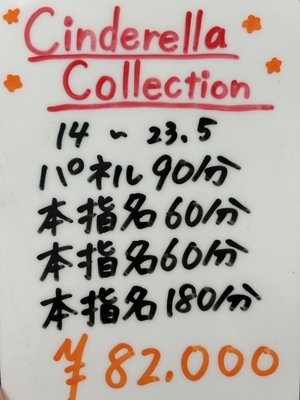 Cinderella
Collection
14 〜 23.5
パネル 90分
本指名 60分
本指名 60分
本指名 180分
¥ 82.000